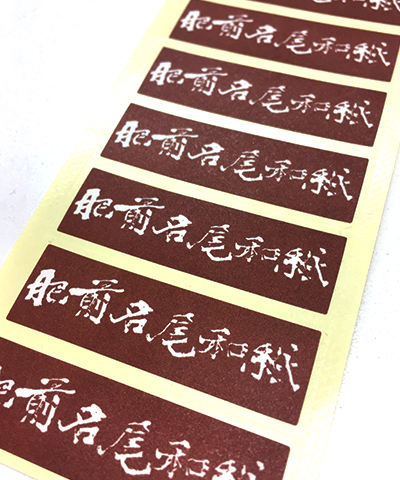 肥前名尾和紙
肥前名尾和紙
肥前名尾和紙
肥前名尾和紙
肥前名尾和紙
肥前名尾和紙
肥前名尾和紙